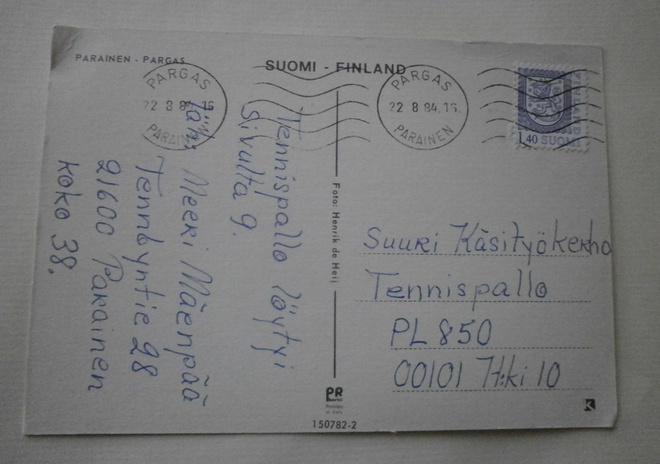 PARAINEN - PARGAS
SUOMI - FINLAND
PARGAS
22 8 84.16
PARAINEN
PARGAS
22 8 84.16
PARAINEN
1,40 SUOMI
Tennispallo löytyi
Sivulta 9.
Täh.
Meeri Mäenpää
21600 Parainen
koko 38.
Foto: Henrik de Heij
Suuri Käsityökerho
Tennispallo
PL 850
00101 H:ki 10
PR
150782-2
K